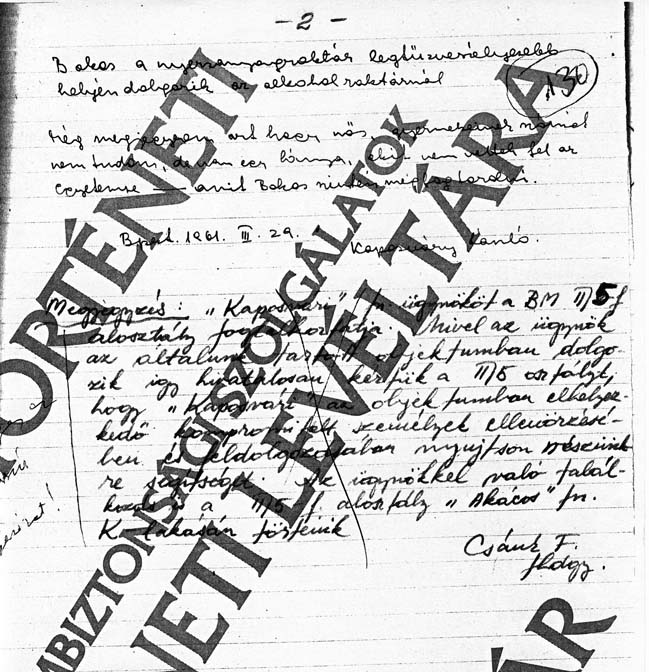 - 2 -
130
Bakos a nyersanyagraktár legtűzveszélyesebb
helyén dolgozik az alkohol raktárnál
Még megjegyzem azt hogy nős, gyermekeiről
nem tudom, de van egy lánya, akit nem vettek fel az
egyetemre — amit Bakos
Bpest. 1961. III. 29.
Megjegyzés: „Kaposvári" fn. ügynököt a BM II/5 f
alosztály foglalkoztatja. Mivel az ügynök
az általunk tartott objektumban dolgo-
zik így hivatalosan kérjük a II/5 osztályt,
hogy „Kaposvári" az objektumban elhelyez-
kedő kompromitált személyek ellenőrzésé-
ben és feldolgozásában nyujtson részünk-
re segítséget. Az ügynökkel való talál-
kozás a II/5 f alosztály „Akácos" fn.
K lakásán történik
Csánk F.
fhdgy.
TÖRTÉNETI
ÁMBIZTONSÁGI SZOLGÁLATOK
NETI LEVÉLTÁRA
ÁR